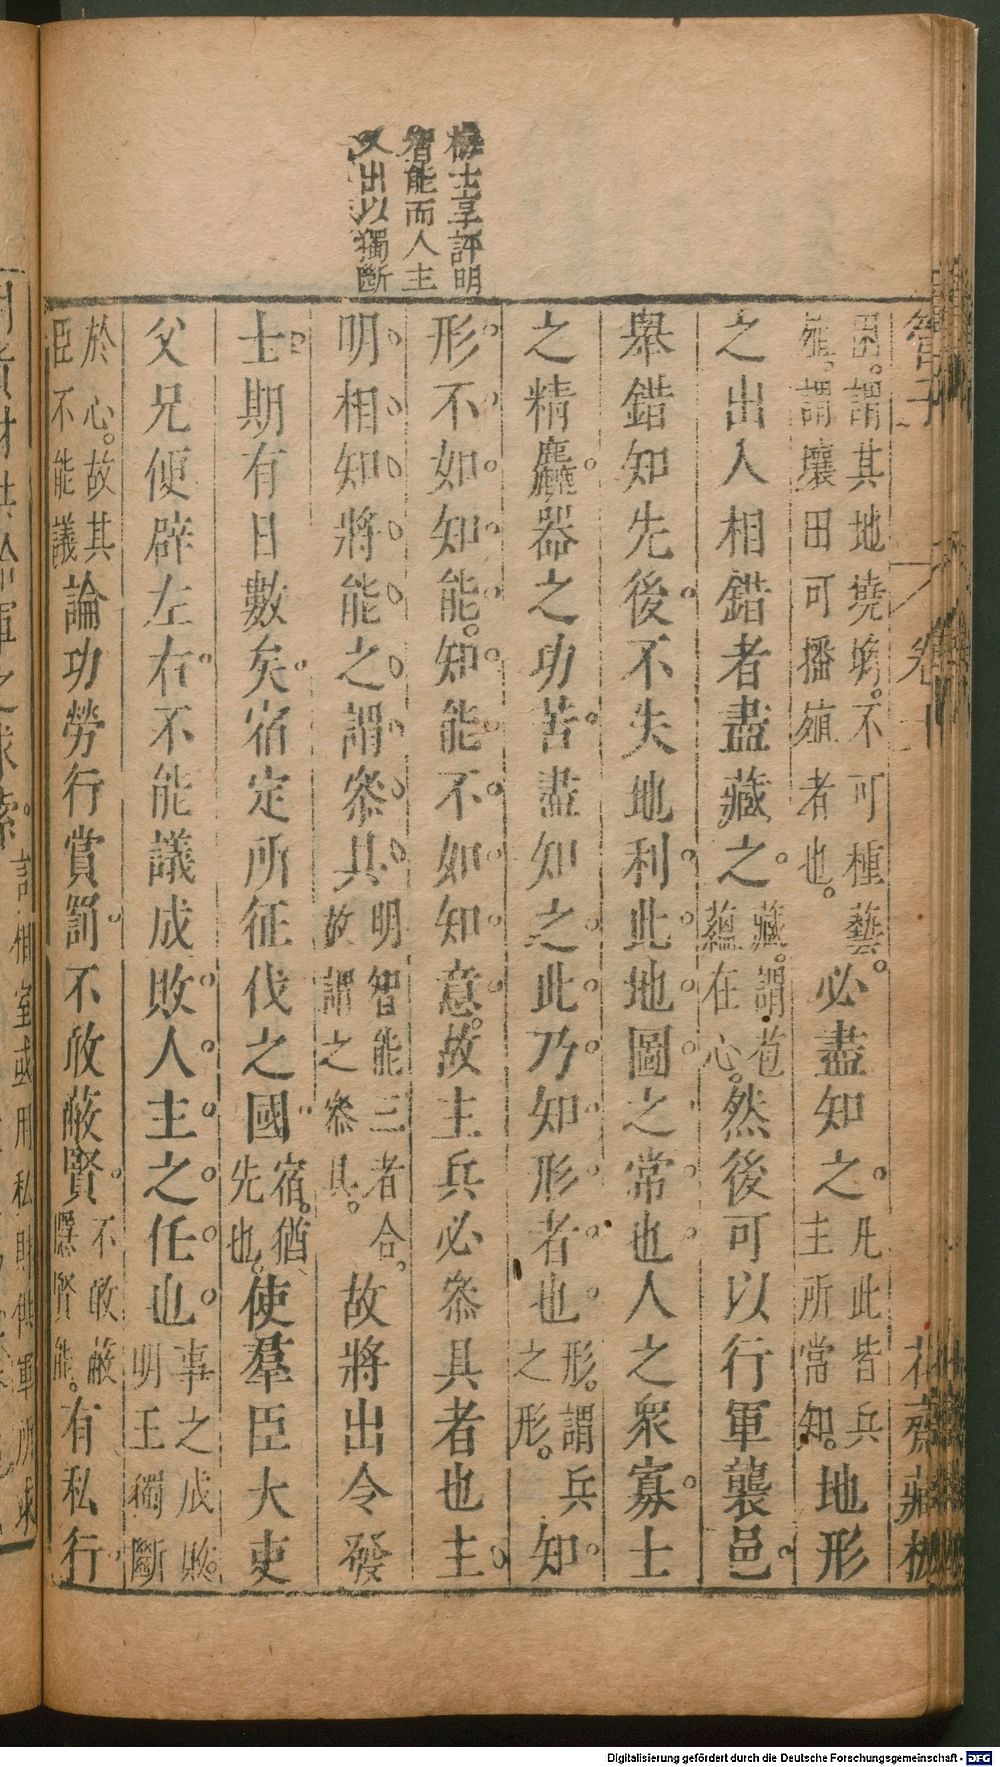 梅士享評明
智能而人主
又出以獨斷
管子
卷十
花齋藏板
困。謂其地墝埆。不可種藝。
殖。謂壤田可播殖者也。必盡知之。凡此皆兵主所當知。地形
之出入相錯者盡藏之。藏。謂苞蘊在心。然後可以行軍襲邑。
舉錯知先後不失地利。此地圖之常也人之衆寡士
之精麤器之功苦盡知之此乃知形者也形。謂兵之形。知
形不如知能。知能不如知意。故主兵必叅具者也主
明相知將能之謂叅具明智能三者合。故謂之叅具。故將出令發
士期有日數矣宿定所征伐之國宿。猶先也。使羣臣大吏
父兄便辟左右不能議成敗人主之任也事之成敗。明王獨斷
於心。故其臣不能議論功勞行賞罰不敢蔽賢不敢蔽隱賢能。有私行
用貨財供給軍之求索。謂相室或用私財供軍所求
Digitalisierung gefördert durch die Deutsche Forschungsgemeinschaft - DFG